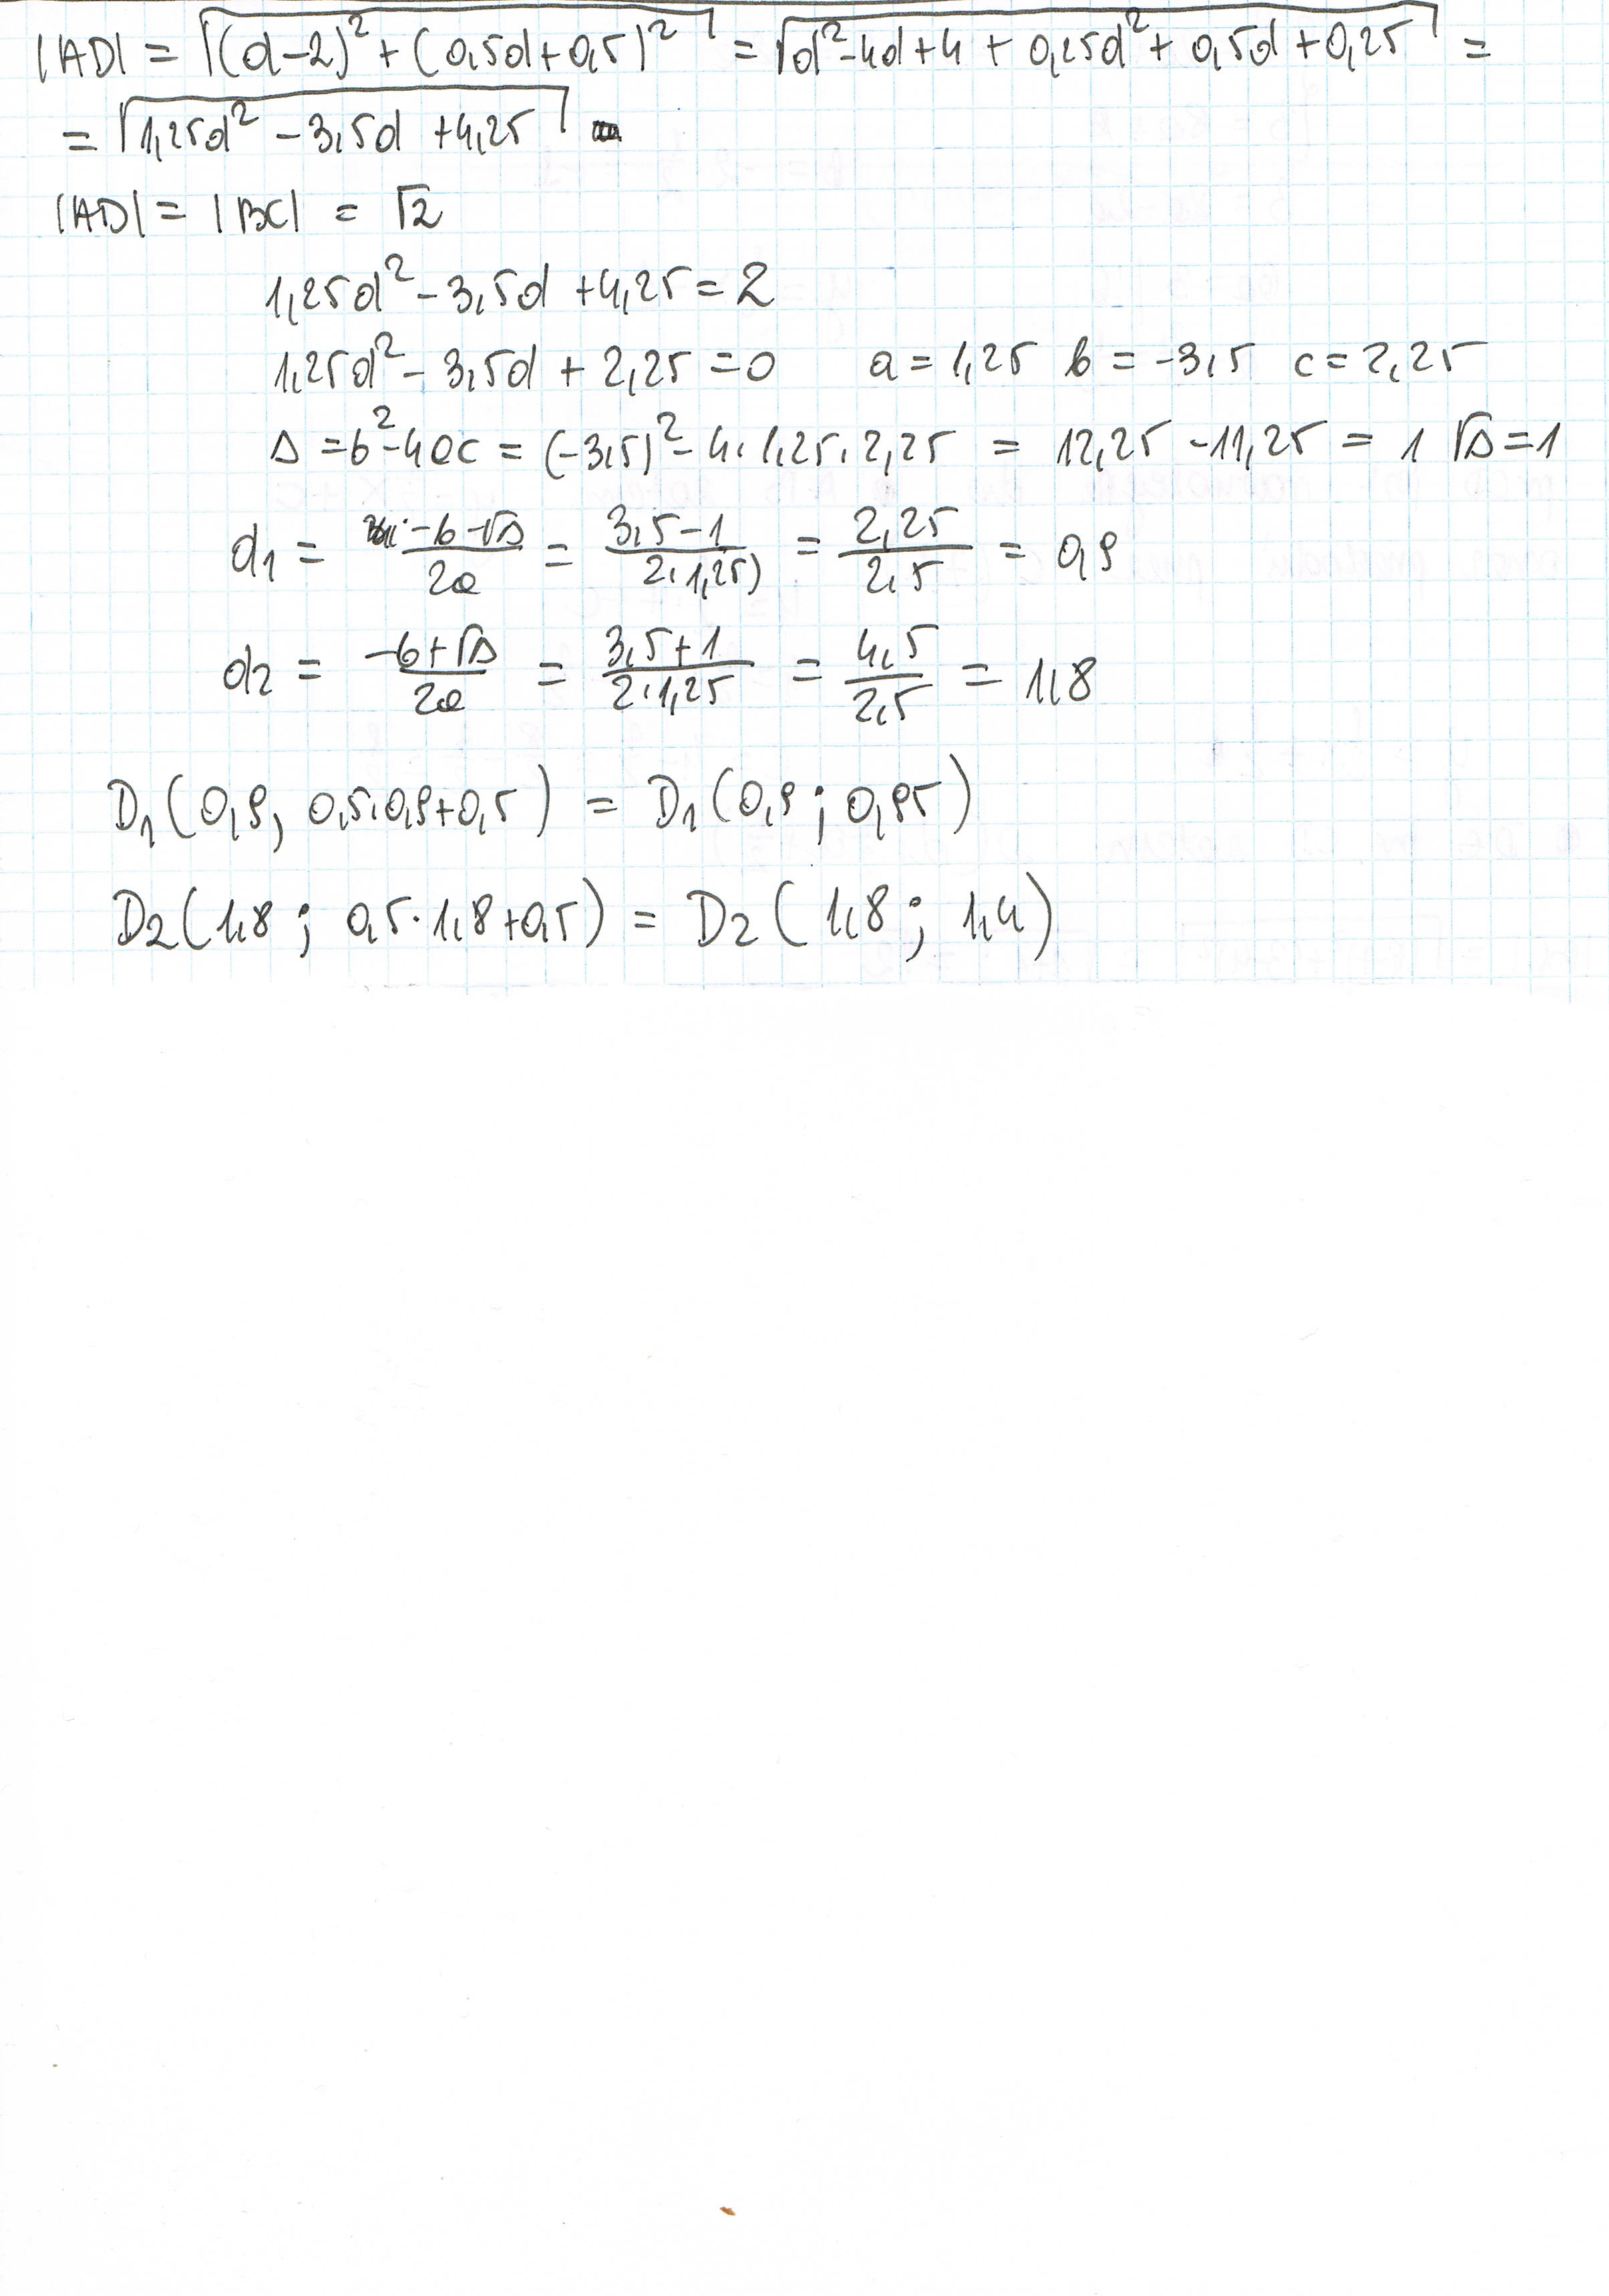 |AD| = √((d-2)² + (0,5d+0,5)²) = √(d²-4d+4 + 0,25d² + 0,5d + 0,25) =
= √(1,25d² - 3,5d + 4,25)
|AD| = |BC| = √2
1,25d² - 3,5d + 4,25 = 2
1,25d² - 3,5d + 2,25 = 0 a = 1,25 b = -3,5 c = 2,25
Δ = b²-4ac = (-3,5)² - 4·1,25·2,25 = 12,25 - 11,25 = 1 √Δ = 1
d1 = (-b-√Δ)/2a = (3,5-1)/(2·1,25) = 2,25/2,5 = 0,9
d2 = (-b+√Δ)/2a = (3,5+1)/(2·1,25) = 4,5/2,5 = 1,8
D1(0,9; 0,5·0,9+0,5) = D1(0,9; 0,95)
D2(1,8; 0,5·1,8+0,5) = D2(1,8; 1,4)